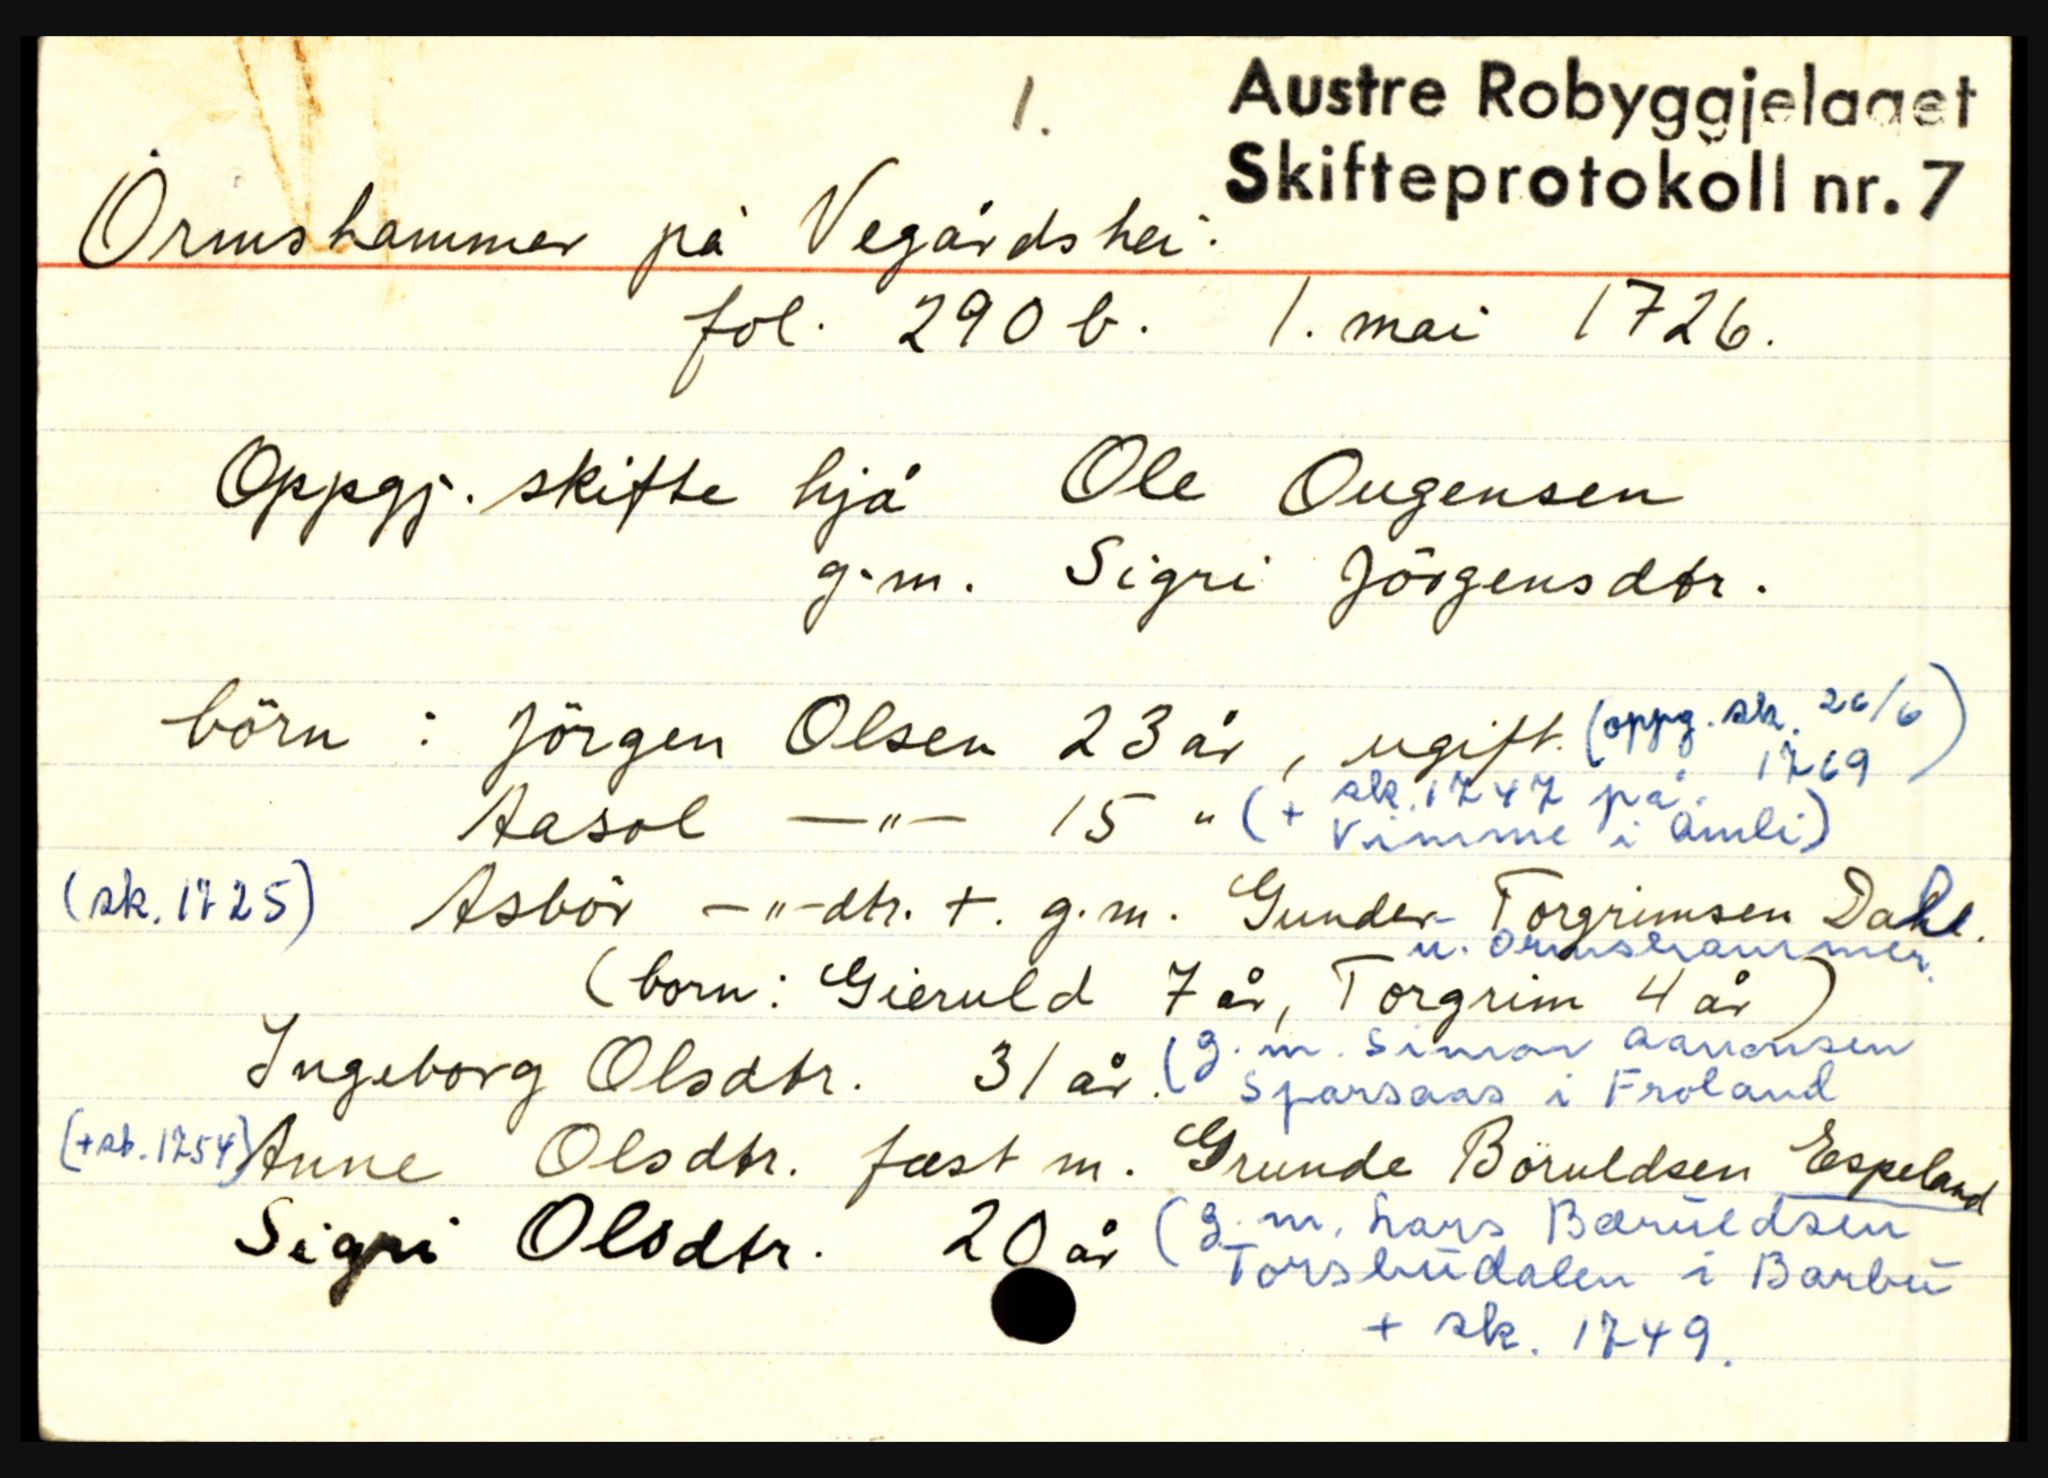 1.
Austre Robyggjelaget
Skifteprotokoll nr. 7
Ormshammer på Vegårdshei.
fol. 290 b. 1. mai 1726.
Oppgj. skifte hjå Ole Ougensen
g.m. Sigri Jörgensdtr.
börn : Jörgen Olsen 23 år, ugift. (oppg. sk. 26/6 1769)
Aasol —"— 15 " (+ sk. 1747 på Vimme i Åmli)
(sk. 1725) Asbör —"—dtr. +. g.m. Gunder Torgrimsen Dahl.
u. Ormshammer.
(born: Gieruld 7 år, Torgrim 4 år)
Ingeborg Olsdtr. 31 år. (g.m. Simon Aanonsen
Sparsaas i Froland
(+sk. 1754) Anne Olsdtr. fæst m. Grunde Böruldsen Espeland
Sigri Olsdtr. 20 år (g.m. Lars Bæruldsen
Torsbudalen i Barbu
+ sk. 1749.